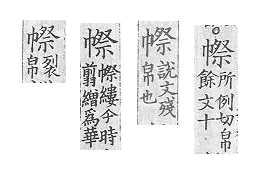 㡜
裂
帛
㡜
㡜縷今時
翦繒爲華
㡜
說文殘
帛也
○㡜
所例切帛
餘文十